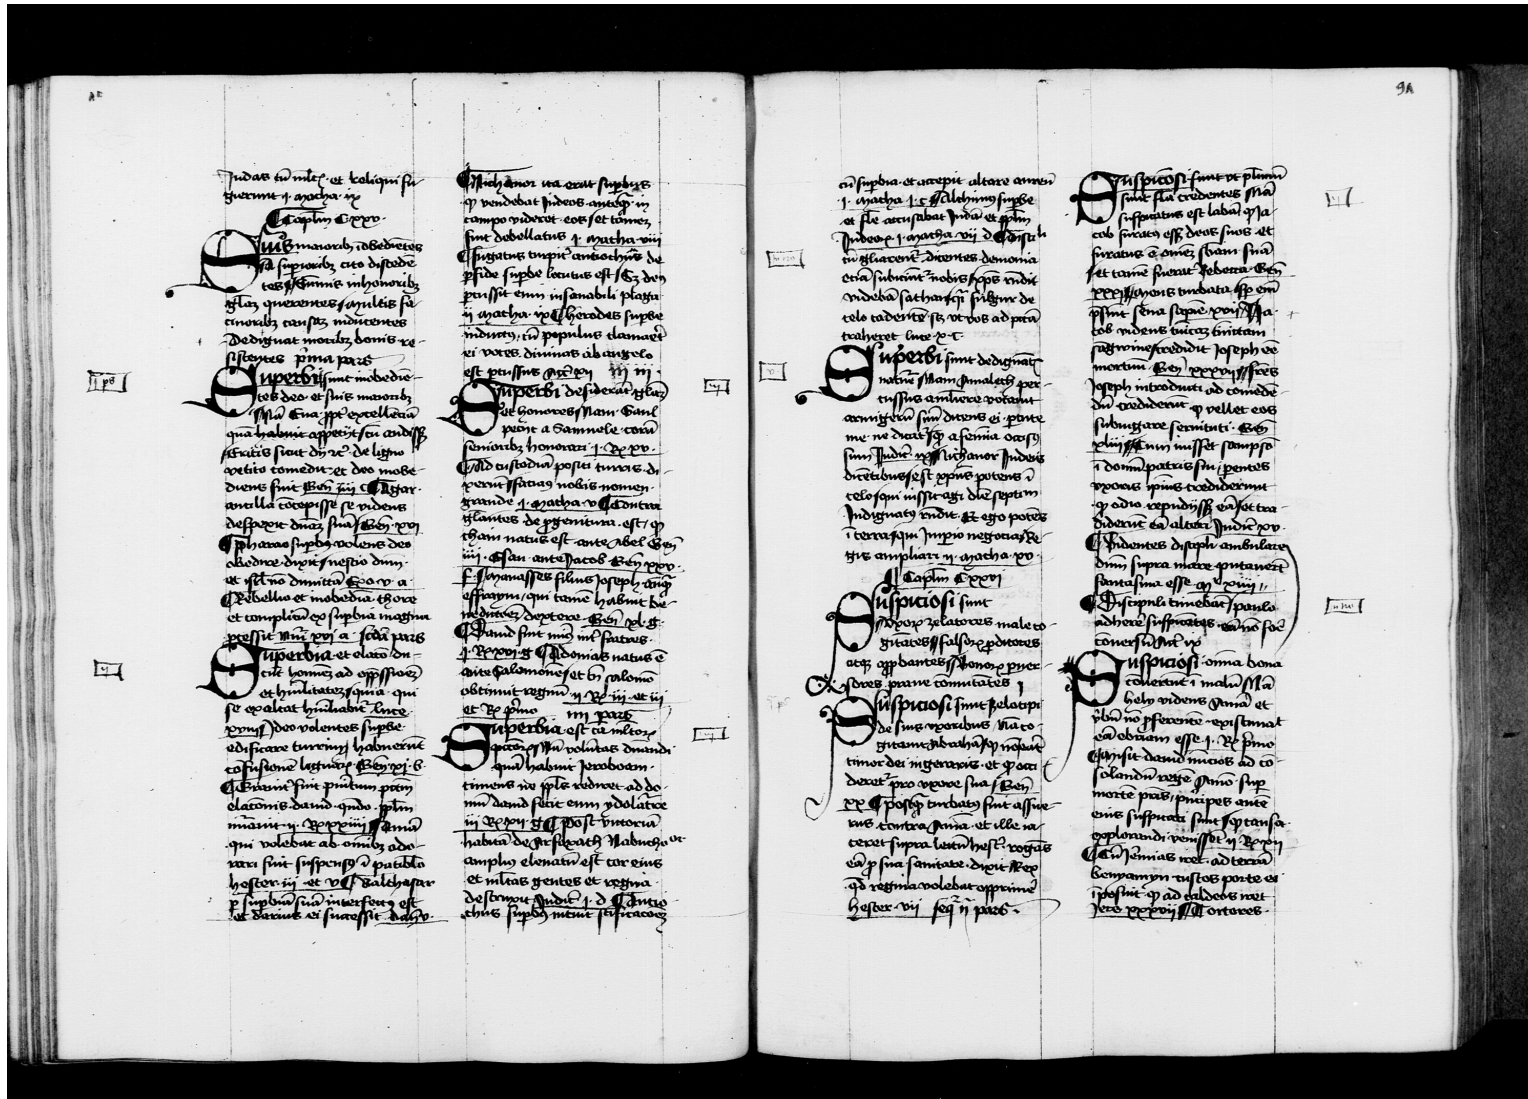 Judas cū ml̄tꝭ · et reliqui fu-
gerunt j · macha · ix
Capl̄m Cxxv ·
Suis maioribꝫ īobediētes
sā superioribꝫ cito discedē-
tes
gl̄az querentes multis fa-
cinoribꝫ causaz inducentes
Dedignāt moribꝫ donis re-
sistentes p̄ma pars
Superbi sunt inobediē-
tes deo · et suis maioribꝫ
Nā Eua ꝓpt̄ excellenciā
quā habuit appetijt cū audissꝫ
Eritis sicut dij ꝛc̄ · de ligno
vetito comedit · et deo inobe-
diens fuit Gen̄ iij c Agar ·
ancilla cōcepisse se videns
despexit dn̄az suā Gen̄ · xvi
Pharao supbꝰ volens deo
obedire · dixit nescio dnm̄ ·
et isrl̄ nō dimittā Exo · v · a ·
Rebellio et inobediā · chore
et complicū ex supbia magna
ꝓcessit Nūi xvj a · scd̄a pars
Superbia · et elacō du-
cūt hoīnez ad opp̄ssionē
et hūilitatez quia · qui
se exaltat hūiliabit̄ · luce
xviij Ideo volentes supbe
edificare turrim habuerūt
cōfusionē liguarꝝ · Gen̄ · xj · b ·
Grauit̄ fuit punitum pctm̄
elacionis dauid · qn̄do · ppl̄m
nūauit · ij · Rꝝ xxiiij Amā
qui volebat ab omibꝫ ado-
rari fuit suspensꝰ ī patibulo
hester · iij · et v Balthasar
ꝑ supbiā suā interfectꝰ est
et darius ei successit · dañ v ·
Nichanor ita erat supbus
ꝙ vendebat Judeos anteqꝫ in
campo videret eos et tamez
fuit debellatus j · macha · viij
fugatus turpit̄ antiochꝰ de
ꝑside supbe locutus est Sꝫ deꝰ
ꝑcussit eum insanabili plaga
ij macha · ix Herodes supbe
indutꝰ, cū populus clamaret
ei voces diuinas ab angelo
est ꝑcussus Act xij iij
Superbi desiderāt glaz̄
et honores Nam Saul
peciit a Samuele · corā
senioribꝫ honorari · j · Rꝝ xv ·
Ad custodiā positi turris · di-
xerūt faciaꝰ nobis nomen
grande j · macha · v Contra
gl̄antes de progenitura · est, ꝙ
chaim natus est · ante Abel Gen̄
iiij · Esau · ante Jacob · Gen̄ xxv ·
f · Manasses filius Joseph · anteqꝫ
effraym, qui tamē habuit be-
nedictōez dextere · Gen̄ xl · g ·
Dauid fuit mīor int̄ fratres ·
j · Rꝝ xvj g Adonias natus ē
ante Salomonē et tn̄ salomō
obtinuit regnū ij Rꝝ iij · et iij
et Rꝝ p̄mo iiij pars
Superbia · est cā ml̄torꝝ
pctorꝝ Nā volūtas dnandi ·
quā habuit Jeroboam ·
timens ne ppl̄s rediret ad do-
mū dauid fecit eum ydolatrē
iij Rꝝ xij · g Post victoriā
habitā de arfaxath Nabucho et
amplꝰ eleuatū est cor eius
et ml̄tas gentes et regna
destruxit Judit · j · d Antio-
chus supbꝰ intrauit scificacōez
cū supbia · et accepit altare aureū
· j · macha · j · c Alchimꝰ supbe
et fle accusabat Judā et ppl̄m
Judeorꝝ j · macha · vij d discili
cū gliarent̄ · dicentes · demonia
etiā subiciūt̄ nobis xpꝰ rn̄dit
videbā sathanā qͣ fulgur de
celo cadente · sꝫ ut vos ad pctā
traheret luce · x · c ·
Superbi sunt dedignātes
natūe Nam Amalech per-
cussus a muliere vocauit
armigerū suū dicens ei · ꝑcute
me · ne dicat̄ ꝙ a femīa occisꝰ
sum Judicꝰ ix Nichanor Judeis
dicētibus est xp̄us potens ī
celo qui iussit agi diē septim
Indignatꝰ rn̄dit · Et ego potēs
ī terra qui īmpio negocia Re-
gis ampliari ij · macha · xv ·
Capl̄m Cxxvi
Suspiciosi sunt
vxorꝝ zelatores male co-
gitātes falsorꝝ ꝓditores
atqꝫ app̄bantes Bonorꝝ puer-
sores · praue cōmutātes j
Suspiciosi sunt zelotipi
de suis vxoribus Nā co-
gitauit Abrahā ꝙ nō eēt
timor dei in geraris · et ꝙ occi-
deret̄ pro vxore sua Gen̄
xx postqꝫ turbatꝰ fuit assue-
rus contra Amā · et ille ia-
ceret supra lectū hest̄ · rogās
eā ꝓ sua sanitate · dixit Rex
qd̄ regina volebat opprimē
hester · vij seqͥ ij pars ·
Suspiciosi sunt vt plimū
sunt fla credentes Nā
suspicatus est labā ꝙ Ja-
cob furatꝰ essꝫ deos suos et
furatus ē omēz sbam suā
et tamē fuerat Rebecca Gen̄
xxxj Mens turbata sp̄ em̄
p̄sūit seua sapiē · xvij Ja-
cob videns tunicaz tinctam
sāgwine credidit Joseph eē
mortuū · Gen̄ xxxvij frēs
Joseph introducti ad comedē-
dū crediderūt ꝙ vellet eos
subiugare seruituti · Gen̄
xliij Cum iuisset sampsō
ī domū patris sui, pentes
vxoris ipius crediderunt
ꝙ odio repudijssꝫ eā et tra-
diderūt eā alteri Judic̄ xv ·
Videntes discipli ambulare
dnm̄ supra mare putauerūt
fantasma esse · mt̄ xiiij
Discipuli timebāt paulo
adhere suspicates · eū nō foē
conuersū Act ix
Suspiciosi · om̄ia bona
cōuertūt ī malū Nā
hely videns Annā et
v̄bū nō ꝓferente · existimat
eā ebriam esse · j · Rꝝ p̄mo
Misit dauid nūcios ad co-
solandū regē Amō · sup
mortē pris, prīcipes autē
eius suspicati sunt ꝙ causa ·
explorandi venissēt ij Rꝝ x
Cū Jeremias iret · ad terrā
benyamyn custos porte ei
īposuit · ꝙ ad caldeos iret
Jere xxxvij Tortores ·